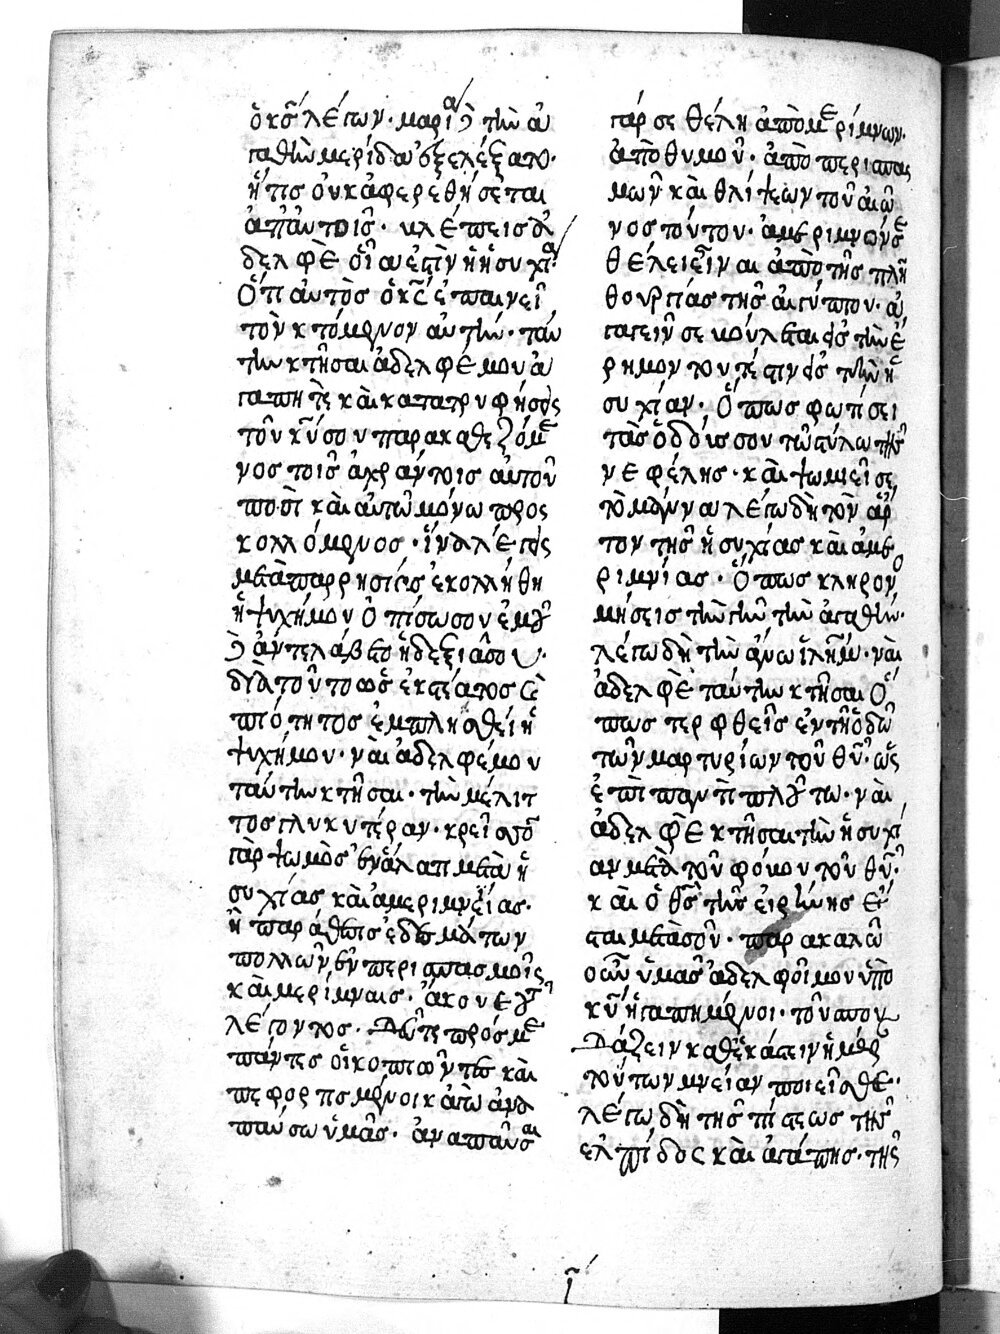 ὁ κς̅ λέγων· μαρία δὲ τὴν ἀ
γαθὴν μερίδα ἐξελέξατο·
ἥτις οὐκ ἀφερεθήσεται
ἀπ' αὐτοῖς· βλέπεις ἀ
δελφὲ οἵα ἐστὶν ἡ ἡσυχία·
Ὅτι αὐτὸς ὁ κς̅ ἐπαινεῖ
τὸν κτόμενον αὐτήν· ταύ
την κτῆσαι ἀδελφέ μου ἀ
γαπητὲ καὶ κατατρυφήσῃς
τοῦ κυ̅ σου παρακαθεζόμε
νος τοῖς ἀχράντοις αὐτοῦ
ποσὶ καὶ αὐτῷ μόνω προς
κολλόμενος· ἵνα λέγῃς
μετὰ παρρησίας ἐκολλήθη
ἡ ψυχή μου ὀπίσω σου ἐμοῦ
δὲ ἀντελάβετο ἡ δεξιά σου·
διὰ τοῦτο ὡς ἐκ στέατος καὶ
πιότητος ἐμπλησθείη ἡ
ψυχή μου· ναὶ ἀδελφέ μου
ταύτην κτῆσαι· τὴν μέλιτ
τος γλυκυτέραν· κρεῖσσον
γὰρ ψωμὸς ἐν ἅλατι μετὰ ἡ
συχίας καὶ ἀμεριμνίας·
ἢ παράθεσις ἐδεσμάτων
πολλῶν ἐν περισπασμοῖς
καὶ μερίμναις· ἄκουε τοῦ
λέγοντος· Δεῦτε πρός με
πάντες οἱ κοπιῶντες καὶ
πεφορτισμένοι κἀγὼ ἀνα
παύσω ὑμᾶς· ἀναπαῦσαι
γάρ σε θέλη ἀπὸ μερίμνων·
ἀπὸ θυμοῦ· ἀπὸ περισπας
μῶν καὶ θλίψεων τοῦ αἰῶ
νος τούτου· ἀμεριμνόν σε
θέλει εἶναι ἀπὸ τῆς πλη
θουργίας τῆς αἰγύπτου· ἀ
γαγεῖν σε βούλεται εἰς τὴν ἔ
ρημον τουτέστιν εἰς τὴν ἡ
συχίαν· Ὅπως φωτίσει
τὰς ὁδούς σου τῷ στύλω τῆς
νεφέλης· καὶ ψωμιεῖ σε
τὸ μάννα λέγω δὴ τὸν ἄρ
τον τῆς ἡσυχίας καὶ ἀμε
ριμνίας· Ὅπως κληρονο
μήσεις τὴν γῆν τὴν ἀγαθήν·
λέγω δὴ τὴν ἄνω ἱλη̅μ· ναὶ
ἀδελφὲ ταύτην κτῆσαι Ὅ
πως τερφθεῖς ἐν τῇ ὁδῶ
τῶν μαρτυρίων τοῦ θυ̅· ὡς
ἐπὶ παντὶ πλούτω· ναὶ
ἀδελφὲ κτῆσαι τὴν ἡσυχί
αν μετὰ τοῦ φόβου τοῦ θυ̅·
καὶ ὁ θς̅ τῆς εἰρήνης ἔ
σται μετὰ σοῦ· παρακαλῶ
οὖν ὑμᾶς ἀδελφοί μου ὑπὸ
κυ̅ ἠγαπημένοι· τοῦ σπου
Δάζειν καθεκάστιν ἡμέρ
τούτων μνείαν ποιεῖσθε·
λέγω δὴ τῆς πίστεως τῆς
ἐλπίδος καὶ ἀγάπης· τῆς